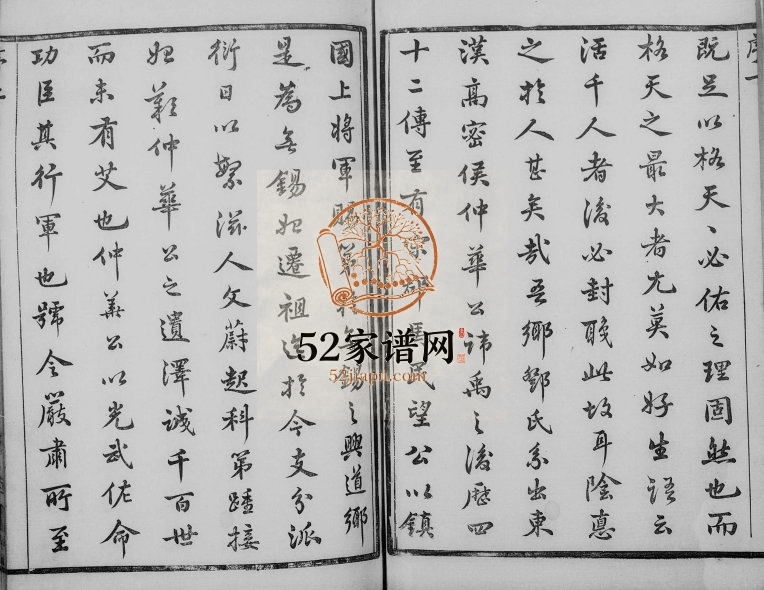 序一
既足以格天、必佑之理固然也而
格天之最大者尤莫如好生語云
活千人者後必封驗此故耳陰德
之於人甚矣哉吾鄉鄧氏系出東
漢高密侯仲華公諱禹之後歷四
十二傳至有宋駙馬民望公以鎮
國上將軍賜第於無錫之興道鄉
是為無錫始遷祖迄於今支分派
衍日以繁滋人文蔚起科第踵接
如歎仲華公之遺澤誠千百世
而未有艾也仲華公以光武佐命
功臣其行軍也號令嚴肅所至
52家谱网
52jiapu.com